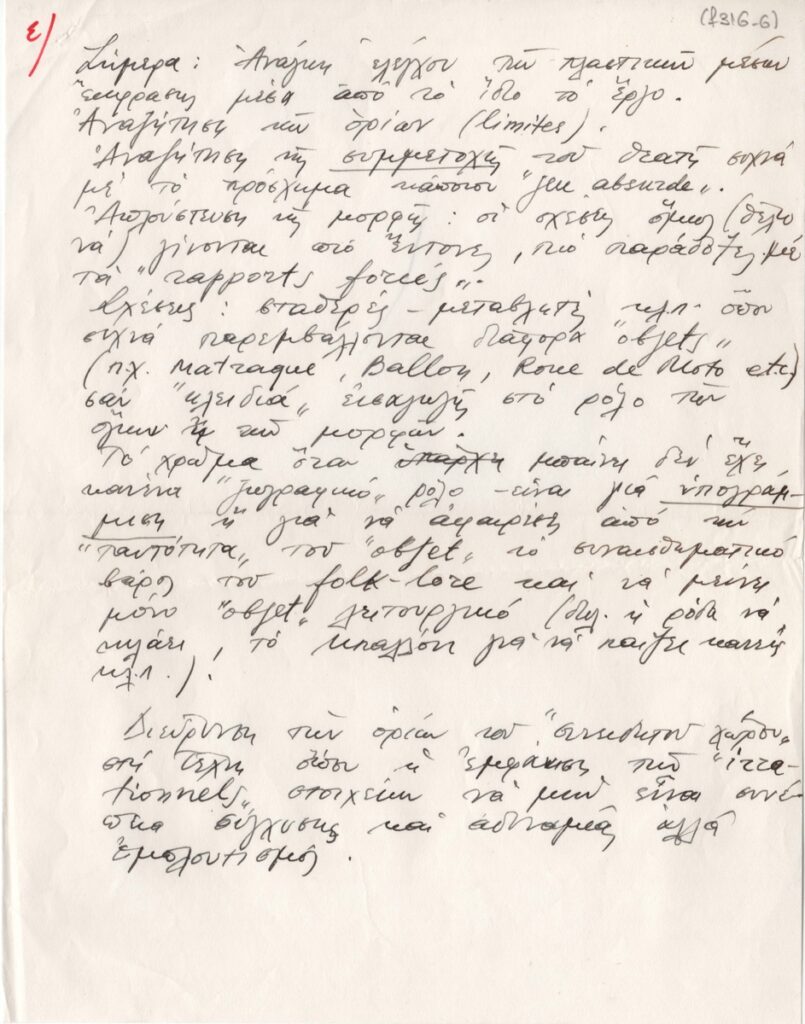 (f316-6)
ε/
Σήμερα: Ἀνάγκη ἐλέγχου τῶν πλαστικῶν μέσων
ἔκφρασης μέσα ἀπό τό ἴδιο τό ἔργο.
Ἀναζήτηση τῶν ὁρίων (limites).
Ἀναζήτηση τῆς συμμετοχῆς τοῦ θεατῆ συχνά
μέ τό πρόσχημα κάποιου "jeu absurde".
Ἁπλούστευση τῆς μορφῆς: οἱ σχέσεις ὅμως (θέλω
νά) γίνονται πιό ἔντονες, πιό παράδοξες μέ
τά "rapports forcés".
Σχέσεις: σταθερές - μεταβλητές κ.λ.π. ὅπου
συχνά παρεμβάλλονται διάφορα "objets"
(π.χ. Matraque, Ballon, Roue de Moto etc)
σάν "κλειδιά" εἰσαγωγῆς στό ρόλο τῶν
ὄγκων ἤ τῶν μορφῶν.
Τό χρῶμα ὅταν ὑπάρχει μπαίνει δέν ἔχει
κανένα "ζωγραφικό" ρόλο - εἶναι μιά ὑπογράμ-
μιση ἤ γιά νά ἀφαιρέσει ἀπό τήν
"ταυτότητα" τοῦ "objet" τό συναισθηματικό
βάρος τοῦ folk-lore καί νά μείνει
μόνο "objet" λειτουργικό (δηλ. ἡ ρόδα νά
κυλάει, τό μπαλλόνι γιά νά παίξει κανείς
κ.λ.π.).
Διεύρυνση τῶν ὁρίων τοῦ "συνειδητοῦ χώρου"
στή Τέχνη ὅπου ἡ ἐμφάνιση τῶν "irra-
tionnels" στοιχείων νά μήν εἶναι συνέ-
πεια σύγχυσης καί ἀδυναμίας ἀλλά
ἐμπλουτισμός.